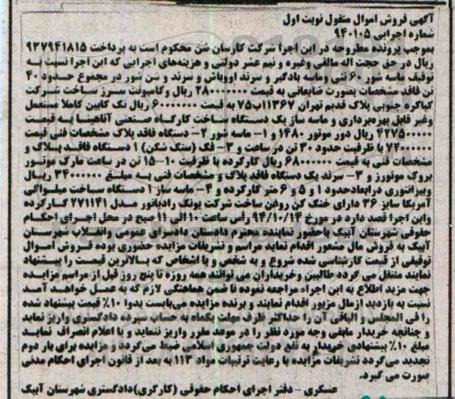 آگهی فروش اموال منقول نوبت اول
شماره اجرایی ۹۴۰۱۰۵
بموجب پرونده مطروحه در این اجرا شرکت کارسان شن محکوم است به پرداخت ۹۲۷۹۴۱۸۱۵
ریال در حق حجت اله مالقی وغیره و نیم عشر دولتی و هزینه‌های اجرایی که این اجرا نسبت به
توقیف ماسه شور ۶۰ تنی وماسه بادگیر و سرند اووپاش و سرند و شن شور در مجموع حدود ۴۰
تن فاقد مشخصات بصورت ضایعاتی به قیمت ۲۸۰۰۰۰۰۰۰ ریال وکامپوست سرز ساخت شرکت
کپاگره جنوبی پلاک قدیم تهران ۱۱۳۶۷ب۷۵ به قیمت ۶۰۰۰۰۰۰۰ ریال تک کابین کاملا مستعمل
وغیر قابل بهره‌برداری و ماسه ساز یک دستگاه ساخت کارگاه صنعتی آناهیتا به قیمت
۴۲۷۵۰۰۰۰ ریال دور موتور ۱۴۸۰ و ۱- ماسه شور ۲- دستگاه فاقد پلاک مشخصات فنی قیمت
۷۲۰۰۰۰۰۰ با ظرفیت حدود ۳۰ تن در ساعت و ۳- فک (سنگ شکن) ۱ دستگاه فاقد پلاک و
مشخصات فنی به قیمت ۶۸۰۰۰۰۰۰ ریال کارکرده با ظرفیت ۱۰-۱۵ تن در ساعت مارک موتور
بروک موتورز و ۳- سرند یک دستگاه فاقد پلاک و مشخصات فنی به مبلغ ۳۴۰۰۰۰۰۰ ریال
ویبراتوری درابعادحدود ۱ و ۵ و ۶ متر کارکرده و ۴- ماسه ساز ۱ دستگاه ساخت میلواکی
آمریکا سایز ۳۶ دارای خنک کن روغن ساخت شرکت یونگ رادیاتور مدل ۲۷۱۱۴۱ کارکرده
واین اجرا قصد دارد در مورخ ۹۴/۱۰/۱۴ راس ساعت ۱۰ الی ۱۱ صبح در محل اجرای احکام
حقوقی شهرستان آبیک باحضور نماینده محترم دادستان دادسرای عمومی وانقلاب شهرستان
آبیک به فروش مال مذکور اقدام نماید مراسم و تشریفات مزایده حضوری بوده فروش اموال
توقیفی از قیمت کارشناسی شده شروع و به شخص و یا اشخاص که بالاترین قیمت را پیشنهاد
نمایند منتقل می گردد طالبین و خریداران می توانند همه روزه تا پنج روز قبل از مراسم مزایده
جهت مزید اطلاع به این اجراء مراجعه نموده تا ضمن هماهنگی لازم که به عمل خواهد آمد
نسبت به بازدید ازمال مزبور اقدام نمایند و برنده مزایده می‌بایست بدوا ۱۰٪ قیمت پیشنهاد شده
را فی المجلس و الباقی آن را حداکثر ظرف مهلت یکماه به حساب سپرده دادگستری واریز نماید
و چنانچه خریدار مابقی وجه مورد نظر را در موعد مقرر واریز ننماید و یا اعلام انصراف نماید
مبلغ ۱۰٪ پیشنهادی خریدار به نفع دولت جمهوری اسلامی ضبط می‌گردد و مزایده برای بار دوم
تجدید می‌گردد تشریفات مزایده با رعایت ترتیبات مواد ۱۱۳ به بعد از قانون اجرای احکام مدنی
صورت می گیرد.
عسکری - دفتر اجرای احکام حقوقی (کارگری)دادگستری شهرستان آبیک